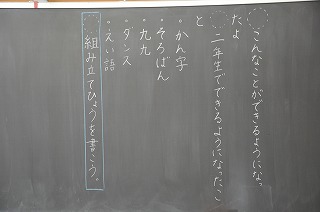 こんなことができるようになっ
たよ
二年生でできるようになったこ
と
・かん字
・そろばん
・九九
・ダンス
・えい語
組み立てひょうを書こう。